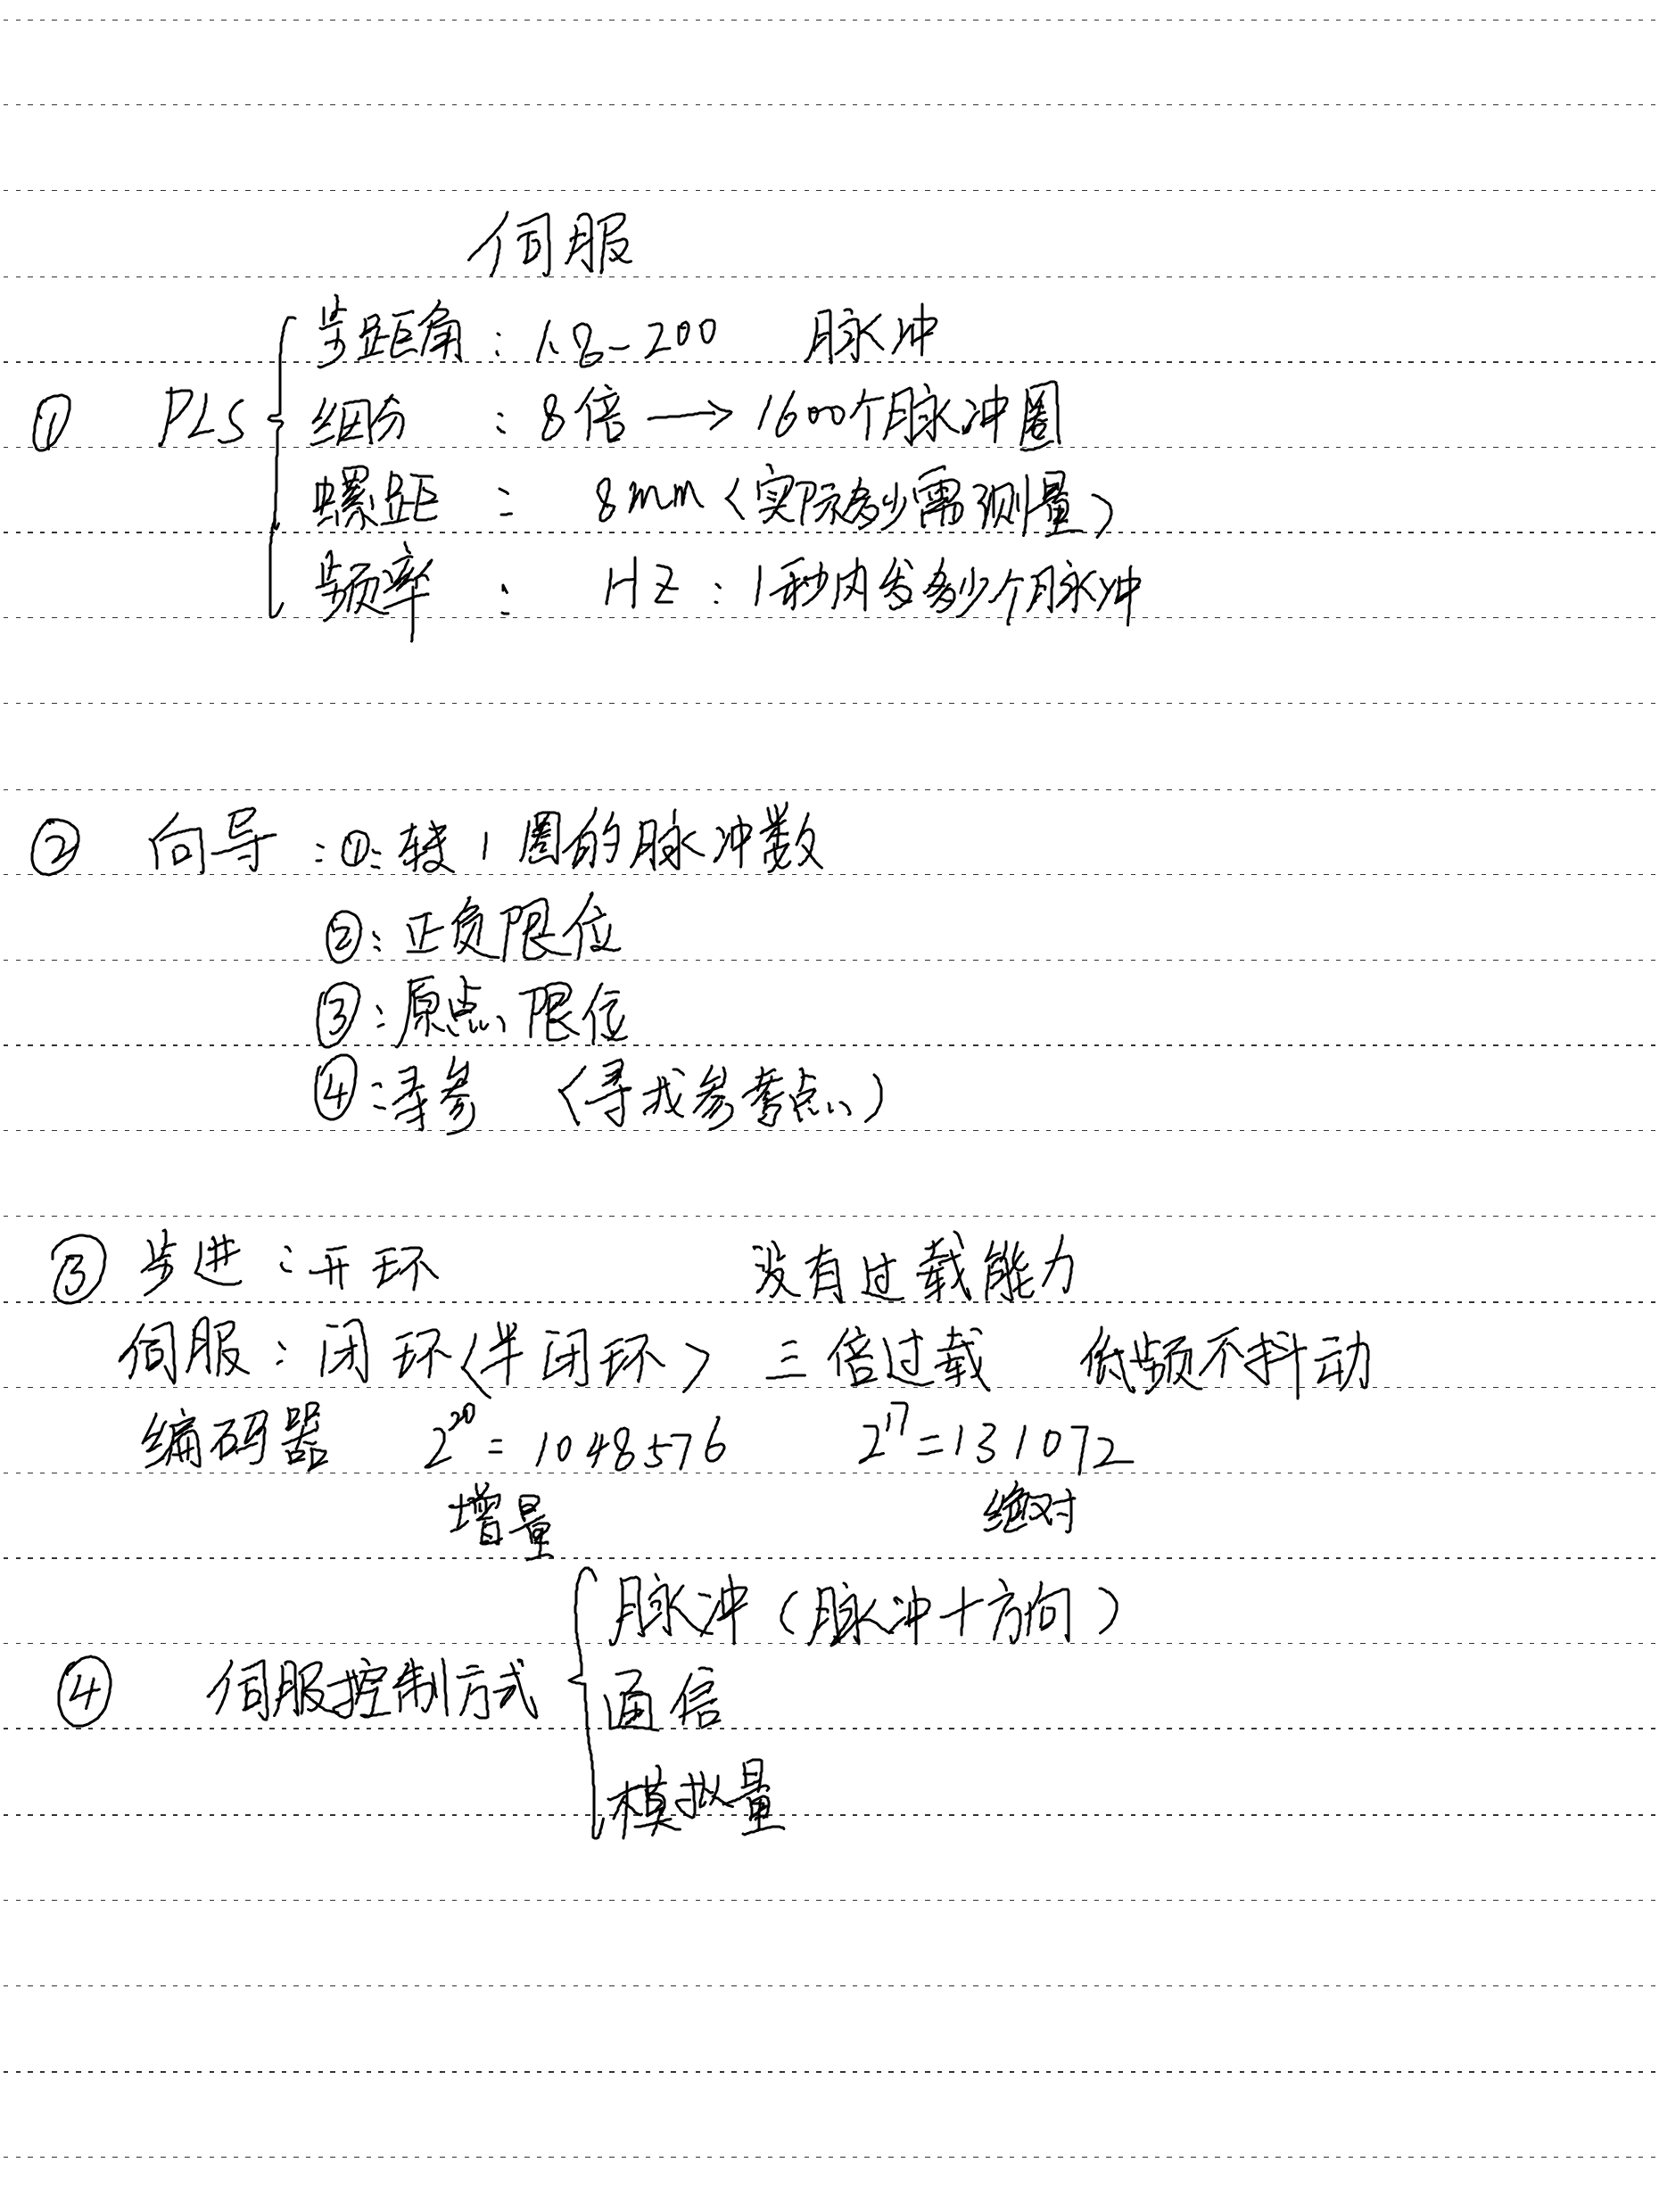 伺服
步距角：1.8-200 脉冲
① PLS 细分：8倍→1600个脉冲圈
螺距：8mm（实际多少需测量）
频率：HZ：1秒内发多少个脉冲
② 向导：①：转1圈的脉冲数
②：正负限位
③：原点限位
④：寻参（寻找参考点）
③ 步进：开环 没有过载能力
伺服：闭环（半闭环） 三倍过载 低频不抖动
编码器 2²⁰=1048576 2¹⁷=131072
增量 绝对
脉冲（脉冲+方向）
④ 伺服控制方式 通信
模拟量